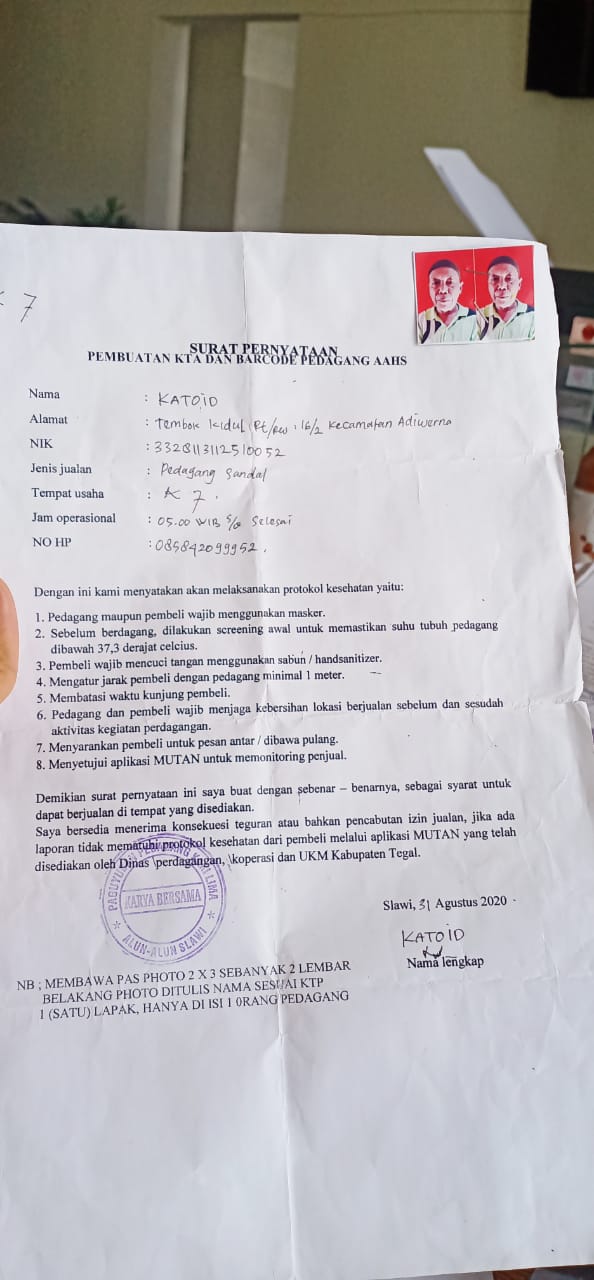 K 7
SURAT PERNYATAAN
PEMBUATAN KTA DAN BARCODE PEDAGANG AAHS
Nama : KATOID
Alamat : Tembok Kidul Rt/Rw : 16/2 Kecamatan Adiwerna
NIK : 3328113112510052
Jenis jualan : Pedagang Sandal
Tempat usaha : K 7.
Jam operasional : 05.00 WIB s/d Selesai
NO HP : 085842099952.
Dengan ini kami menyatakan akan melaksanakan protokol kesehatan yaitu:
1. Pedagang maupun pembeli wajib menggunakan masker.
2. Sebelum berdagang, dilakukan screening awal untuk memastikan suhu tubuh pedagang
dibawah 37,3 derajat celcius.
3. Pembeli wajib mencuci tangan menggunakan sabun / handsanitizer.
4. Mengatur jarak pembeli dengan pedagang minimal 1 meter.
5. Membatasi waktu kunjung pembeli.
6. Pedagang dan pembeli wajib menjaga kebersihan lokasi berjualan sebelum dan sesudah
aktivitas kegiatan perdagangan.
7. Menyarankan pembeli untuk pesan antar / dibawa pulang.
8. Menyetujui aplikasi MUTAN untuk memonitoring penjual.
Demikian surat pernyataan ini saya buat dengan sebenar – benarnya, sebagai syarat untuk
dapat berjualan di tempat yang disediakan.
Saya bersedia menerima konsekuesi teguran atau bahkan pencabutan izin jualan, jika ada
laporan tidak mematuhi protokol kesehatan dari pembeli melalui aplikasi MUTAN yang telah
disediakan oleh Dinas \perdagangan, \koperasi dan UKM Kabupaten Tegal.
PAGUYUBAN PEDAGANG KAKI LIMA
KARYA BERSAMA
ALUN-ALUN SLAWI
Slawi, 31 Agustus 2020
KATOID
Nama lengkap
NB ; MEMBAWA PAS PHOTO 2 X 3 SEBANYAK 2 LEMBAR
BELAKANG PHOTO DITULIS NAMA SESUAI KTP
1 (SATU) LAPAK, HANYA DI ISI 1 0RANG PEDAGANG